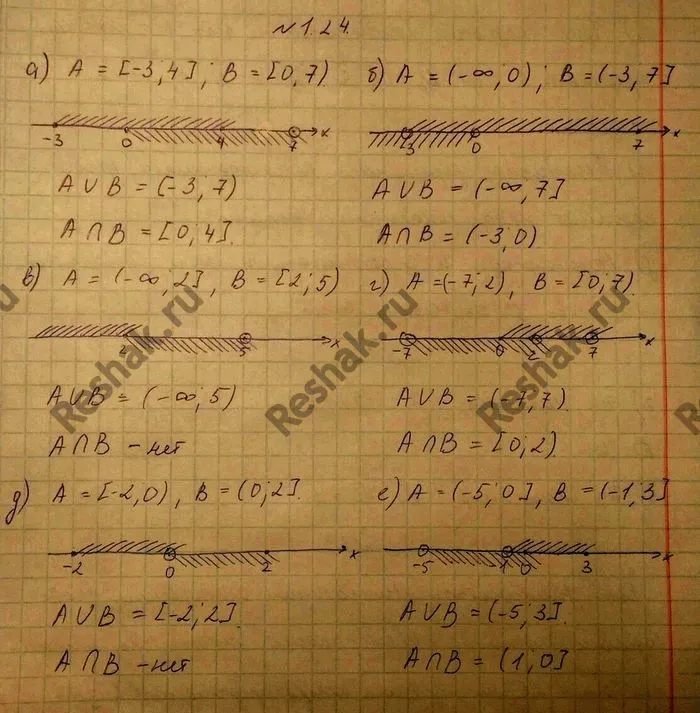 №1.24.
а) A = [-3; 4]; B = [0; 7).
-3 0 4 7 x
A∪B = (-3; 7)
A∩B = [0; 4].
б) A = (-∞; 0); B = (-3; 7]
-3 0 7 x
A∪B = (-∞; 7]
A∩B = (-3; 0)
в) A = (-∞; 2], B = [2; 5)
2 5 x
A∪B = (-∞; 5)
A∩B - нет
г) A = (-7; 2), B = [0; 7).
-7 0 2 7 x
A∪B = (-7; 7).
A∩B = [0; 2)
д) A = [-2; 0), B = (0; 2].
-2 0 2 x
A∪B = [-2; 2].
A∩B - нет
е) A = (-5; 0], B = (-1; 3]
-5 -1 0 3 x
A∪B = (-5; 3].
A∩B = (1; 0]
Reshak.ru
Reshak.ru
Reshak.ru